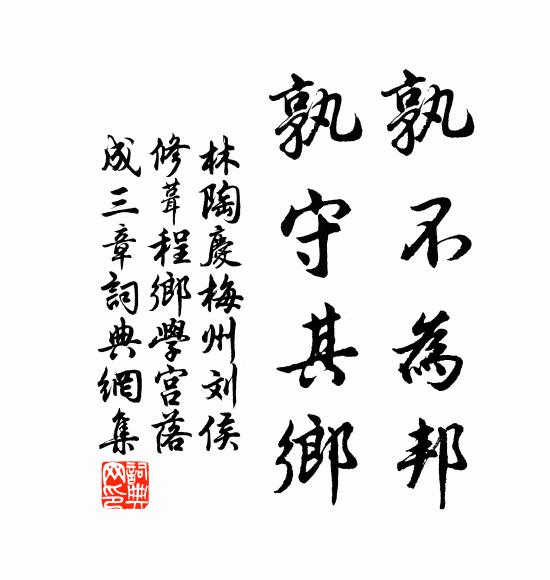 孰不為邦
孰守其鄉
林陶慶梅州刘侯
修葺程鄉學宮落
成三章詞典網集
詞典
网印